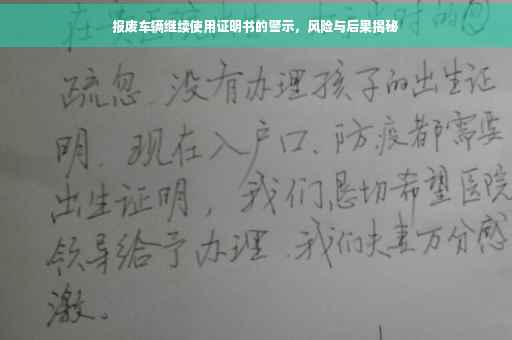 报废车辆继续使用证明书的警示，风险与后果揭秘
疏忽、没有办理孩子的出生证
明、现在入户口、防疫都需要
出生证明，我们恳切希望医院
领导给予办理、我们夫妻万分感
激。